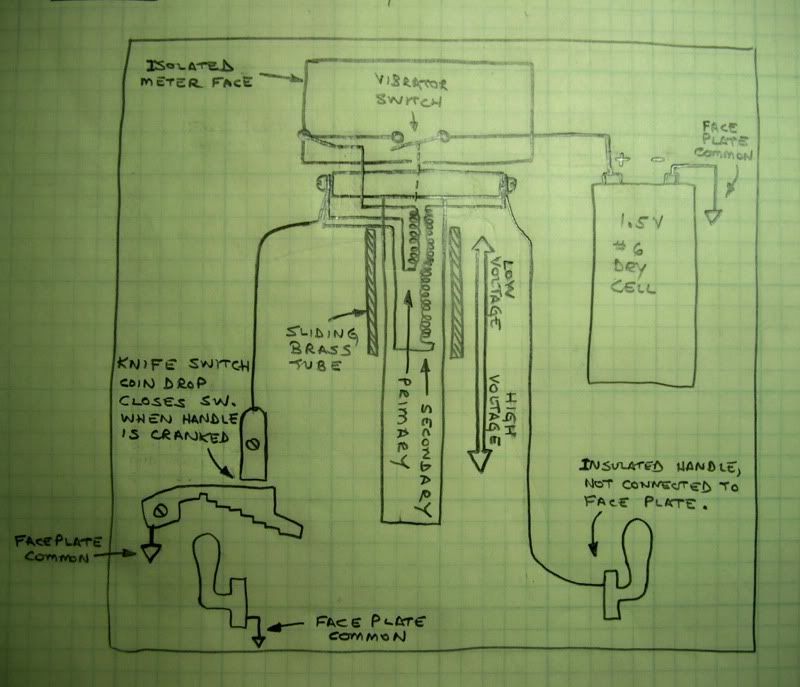 ISOLATED
METER FACE
VIBRATOR
SWITCH
FACE
PLATE
COMMON
+ -
1.5V
#6
DRY
CELL
LOW
VOLTAGE
HIGH
VOLTAGE
SLIDING
BRASS
TUBE
PRIMARY
SECONDARY
KNIFE SWITCH
COIN DROP
CLOSES SW.
WHEN HANDLE
IS CRANKED
INSULATED HANDLE,
NOT CONNECTED TO
FACE PLATE.
FACEPLATE
COMMON
FACE PLATE
COMMON